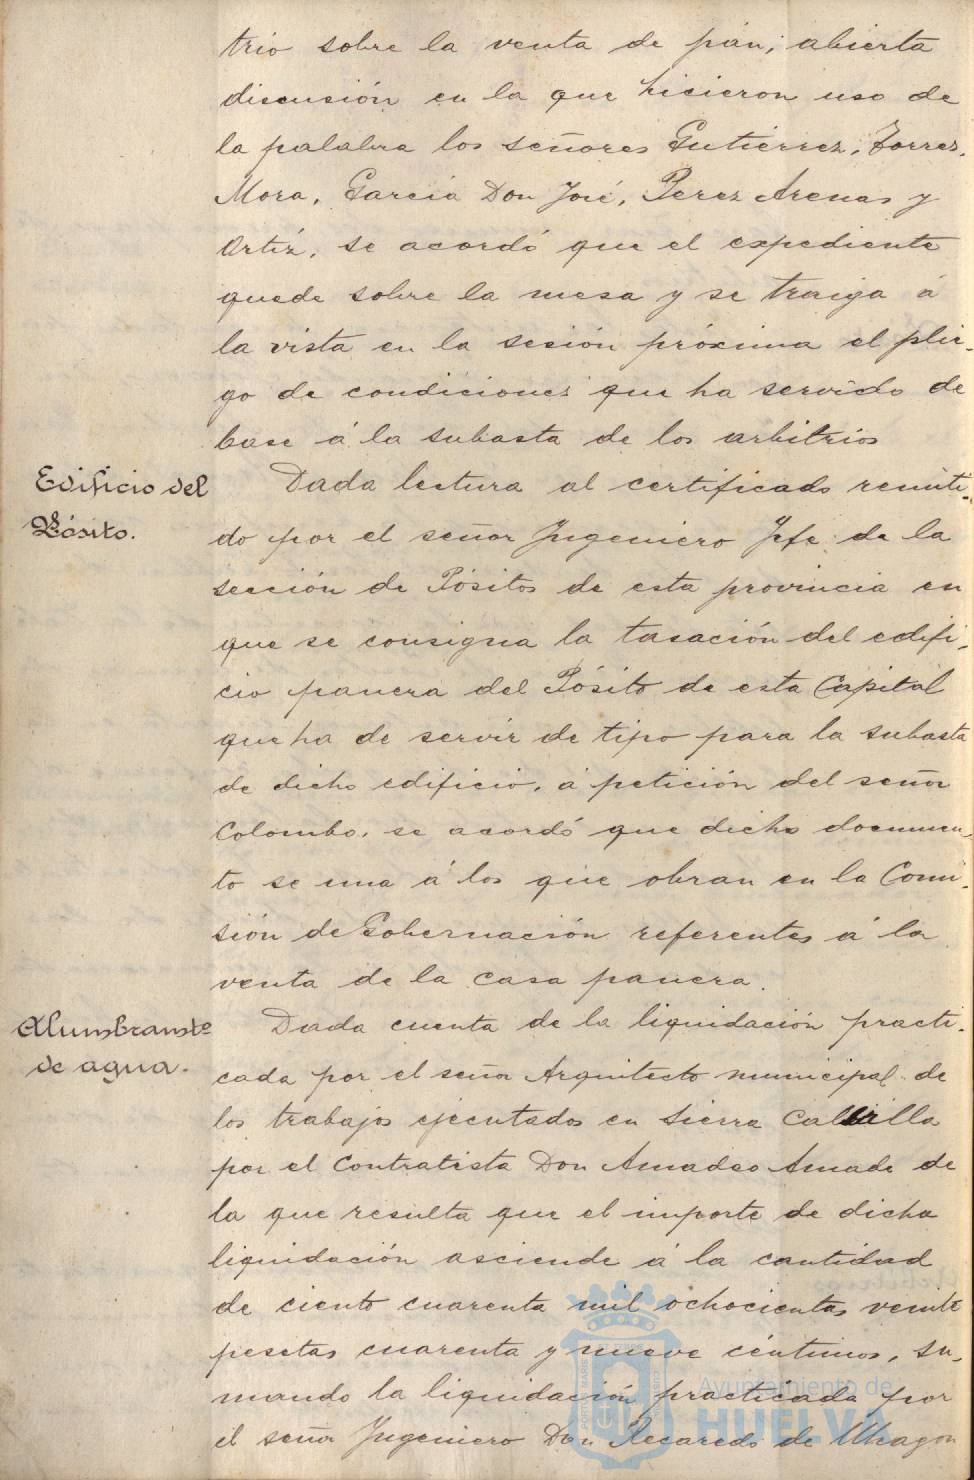 trio sobre la venta de pan; abierta
discusión en la que hicieron uso de
la palabra los señores Gutierrez, Torres,
Mora, García Don José, Perez Arenas y
Ortíz, se acordó que el expediente
quede sobre la mesa y se traiga á
la vista en la sesión próxima el plie-
go de condiciones que ha servido de
base á la subasta de los arbitrios
Edificio del
Pósito.
Dada lectura al certificado remiti-
do por el señor Ingeniero Jefe de la
sección de Pósitos de esta provincia en
que se consigna la tasación del edifi-
cio panera del Pósito de esta Capital
que ha de servir de tipo para la subasta
de dicho edificio, á petición del señor
Colombo, se acordó que dicho documen-
to se una á los que obran en la Comi-
sión de Gobernación referentes á la
venta de la casa panera.
Alumbramto
de agua.
Dada cuenta de la liquidación practi-
cada por el señor Arquitecto municipal de
los trabajos ejecutados en Sierra
por el Contratista Don Amadeo Amade de
la que resulta que el importe de dicha
liquidación asciende á la cantidad
de ciento cuarenta mil ochocientas veinte
pesetas cuarenta y nueve céntimos, su-
mando la liquidación practicada por
el señor Ingeniero Don Recaredo de Uhagon
Ayuntamiento de
HUELVA